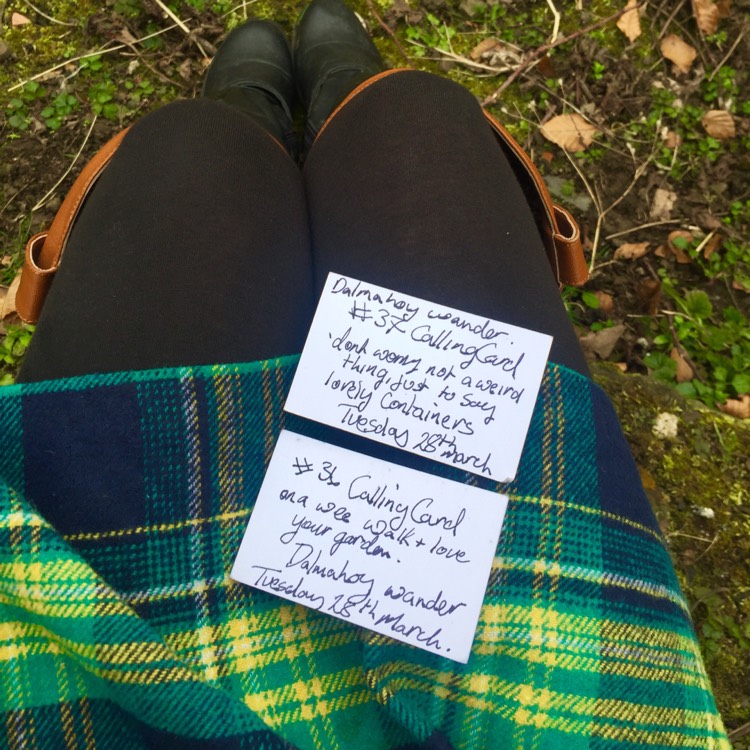 Dalmahoy wander.
#37 Calling Card
'dont worry not a weird
thing, just to say
lovely Containers
Tuesday 28th March
#36 Calling Card
on a wee walk + love
your garden.
Dalmahoy wander
Tuesday 28th March.